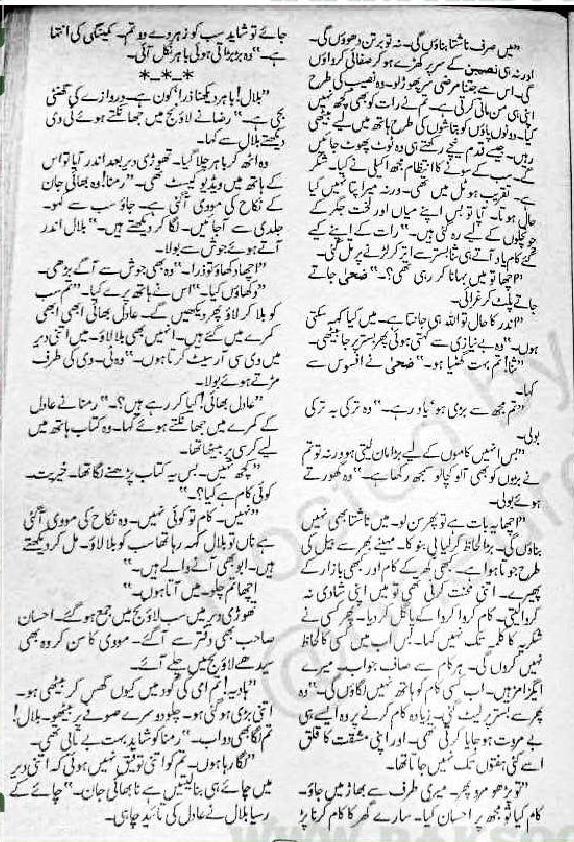 ”میں صرف ناشتا بناؤں گی۔ نہ تو برتن دھوؤں گی۔
اور نہ ہی نصیبن کے سر پر کھڑے ہو کر صفائی کرواؤں
گی۔ اس سے جتنا مرضی سر پھوڑ لو۔ وہ نصیب کی طرح
اپنی ہی من مانی کرتی ہے۔ تم نے رات کو بھی کچھ نہیں
کیا۔ دونوں پاؤں کو بتاشوں کی طرح ہاتھ میں لیے بیٹھی
رہیں۔ جیسے قدم نیچے رکھتے ہی وہ ٹوٹ پھوٹ جائیں
گے۔ سب کے سونے کا انتظام مجھ اکیلی نے کیا۔ شکر
ہے۔ تقریب ہوٹل میں تھی۔ ورنہ میرا پتا نہیں کیا
حال ہوتا۔ آپا تو بس اپنے میاں اور لخت جگر کے
چونچلوں کے لیے رہ گئی ہیں۔“ رات کے اپنے کیے
گئے کام یاد آتے ہی ثنا بستر سے اتر کر لڑنے پر مل گئی۔
”اچھا تو میں بہانا کر رہی تھی؟“ ضحیٰ جاتے
جاتے پلٹ کر غرائی۔
”اندر کا حال تو اللہ ہی جانتا ہے۔ میں کیا کہہ سکتی
ہوں۔“ وہ بے نیازی سے کہتی ہوئی پھر بستر پر جا بیٹھی۔
”ثنا! تم بہت گھٹیا ہو۔“ ضحیٰ نے افسوس سے
کہا۔
”تم مجھ سے بڑی ہو‘ یاد رہے۔“ وہ ترکی بہ ترکی
بولی۔
”بس انہیں کاموں کے لیے بڑا مان لیتی ہو ورنہ تو تم
نے بڑوں کو بھی آلو کچالو سمجھ رکھا ہے۔“ وہ گھورتے
ہوئے بولی۔
”اچھا یہ بات ہے تو پھر سن لو۔ میں ناشتا بھی نہیں
بناؤں گی۔ بڑا لحاظ کر لیا بی بنو کا۔ مہینے بھر سے بیل کی
طرح جوتا ہوا ہے۔ کبھی گھر کے کام اور کبھی بازار کے
پھیرے۔ اتنی محنت کرنی تھی تو میں اپنی شادی نہ
کروا لیتی۔ کام کروا کروا کے پاگل کر دیا۔ پھر کسی نے
شکریہ کا کلمہ تک نہیں کہا۔ بس اب میں کسی کا لحاظ
نہیں کروں گی۔ ہر کام سے صاف جواب۔ میرے
ایگزامز ہیں۔ اب کسی کام کو ہاتھ نہیں لگاؤں گی۔“ وہ
پھر سے بستر پر لیٹ گئی۔ زیادہ کام کرنے پر وہ ایسے ہی
بے مروت ہو جایا کرتی تھی۔ اور اپنی مشقت کا قلق
اسے کئی ہفتوں تک نہیں جاتا تھا۔
”تو پڑھو مرو پھر۔ میری طرف سے بھاڑ میں جاؤ۔
کام کیا تو مجھ پر احسان کیا۔ سارے گھر کا کام کرنا پڑ
جائے تو شاید سب کو زہر دے دو تم۔ کمینگی کی انتہا
ہے۔“ وہ بڑبڑاتی ہوئی باہر نکل آئی۔
*-*-*
”بلال! باہر دیکھنا ذرا‘ کون ہے۔ دروازے کی گھنٹی
بجی ہے۔“ رضا نے لاؤنج میں جھانکتے ہوئے ٹی وی
دیکھتے بلال سے کہا۔
وہ اٹھ کر باہر چلا گیا۔ تھوڑی دیر بعد اندر آیا تو اس
کے ہاتھ میں ویڈیو کیسٹ تھی۔ ”رمنا! وہ بھائی جان
کے نکاح کی مووی آ گئی ہے۔ جاؤ سب سے کہو۔
جلدی سے آ جائیں۔ لگا کر دیکھتے ہیں۔“ بلال اندر
آتے ہوئے جوش سے بولا۔
”اچھا دکھاؤ تو ذرا۔“ وہ بھی جوش سے آگے بڑھی۔
”دکھاؤں کیا۔“ اس نے ہاتھ پرے کیا۔ ”تم سب
کو بلا کر لاؤ پھر دیکھیں گے۔ عادل بھائی ابھی ابھی
کمرے میں گئے ہیں۔ انہیں بھی بلا لاؤ۔ میں اتنی دیر
میں وی سی آر سیٹ کرتا ہوں۔“ وہ ٹی۔ وی کی طرف
مڑتے ہوئے بولا۔
”عادل بھائی! کیا کر رہے ہیں؟“ رمنا نے عادل
کے کمرے میں جھانکتے ہوئے کہا۔ وہ کتاب ہاتھ میں
لیے کرسی پر بیٹھا تھا۔
”کچھ نہیں۔ بس یہ کتاب پڑھنے لگا تھا۔ خیریت۔
کوئی کام ہے کیا؟“
”نہیں۔ کام تو کوئی نہیں۔ وہ نکاح کی مووی آ گئی
ہے ناں تو بلال کہہ رہا تھا سب کو بلا لاؤ۔ مل کر دیکھتے
ہیں۔ ابو بھی آنے والے ہیں۔“
”اچھا تم چلو۔ میں آتا ہوں۔“
تھوڑی دیر میں سب لاؤنج میں جمع ہو گئے۔ احسان
صاحب بھی دفتر سے آ گئے۔ مووی کا سن کر وہ بھی
سیدھے لاؤنج میں چلے آئے۔
”ہادیہ! تم امی کی گود میں کیوں گھس کر بیٹھی ہو۔
اتنی بڑی ہو گئی ہو۔ چلو دوسرے صوفے پر بیٹھو۔ بلال!
تم لگا بھی دو اب۔“ رمنا کو شاید بہت بے تابی تھی۔
”لگا رہا ہوں۔ تم کو اتنی توفیق نہیں ہوئی کہ اتنی دیر
میں چائے ہی بنا لیتیں ہے نا بھائی جان۔“ چائے کے
رسیا بلال نے عادل کی تائید چاہی۔